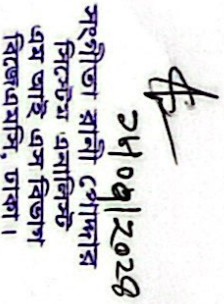 ২৮/০৭/২০২৪
সঙ্গীতা রানী পোদ্দার
সিস্টেম এনালিস্ট
এম আই এস বিভাগ
বিজেএমসি, ঢাকা।